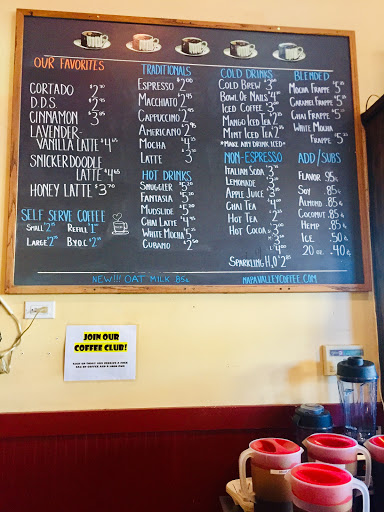 OUR FAVORITES
CORTADO $2
D.D.S. $2
CINNAMON $3
LAVENDER-
VANILLA LATTE $4
SNICKERDOODLE
LATTE $4
HONEY LATTE $3.70
SELF SERVE COFFEE
SMALL $2 REFILL $1
LARGE $2 B.Y.O.C. $2
TRADITIONALS
ESPRESSO $2
MACCHIATO $2
CAPPUCCINO $2
AMERICANO $2
MOCHA $4
LATTE $3
HOT DRINKS
SNUGGLER $5
FANTASIA $5
MUDSLIDE $5
CHAI LATTE $4
WHITE MOCHA $5
CUBANO $2
COLD DRINKS
COLD BREW $3
BOWL OF NAILS $4
ICED COFFEE $3
MANGO ICED TEA $2
MINT ICED TEA $2
*MAKE ANY DRINK ICED*
NON-ESPRESSO
ITALIAN SODA $3
LEMONADE $3
APPLE JUICE $3
CHAI TEA $4
HOT TEA $2
HOT COCOA $3
SPARKLING H2O $2
BLENDED
MOCHA FRAPPE $5
CARAMEL FRAPPE $5
CHAI FRAPPE $5
WHITE MOCHA
FRAPPE $5
ADD/SUBS
FLAVOR .95¢
SOY .85¢
ALMOND .85¢
COCONUT .85¢
HEMP .85¢
ICE .50¢
20 OZ. .40¢
NEW!!! OAT MILK 85¢
NAPAVALLEYCOFFEE.COM
JOIN OUR
COFFEE CLUB!